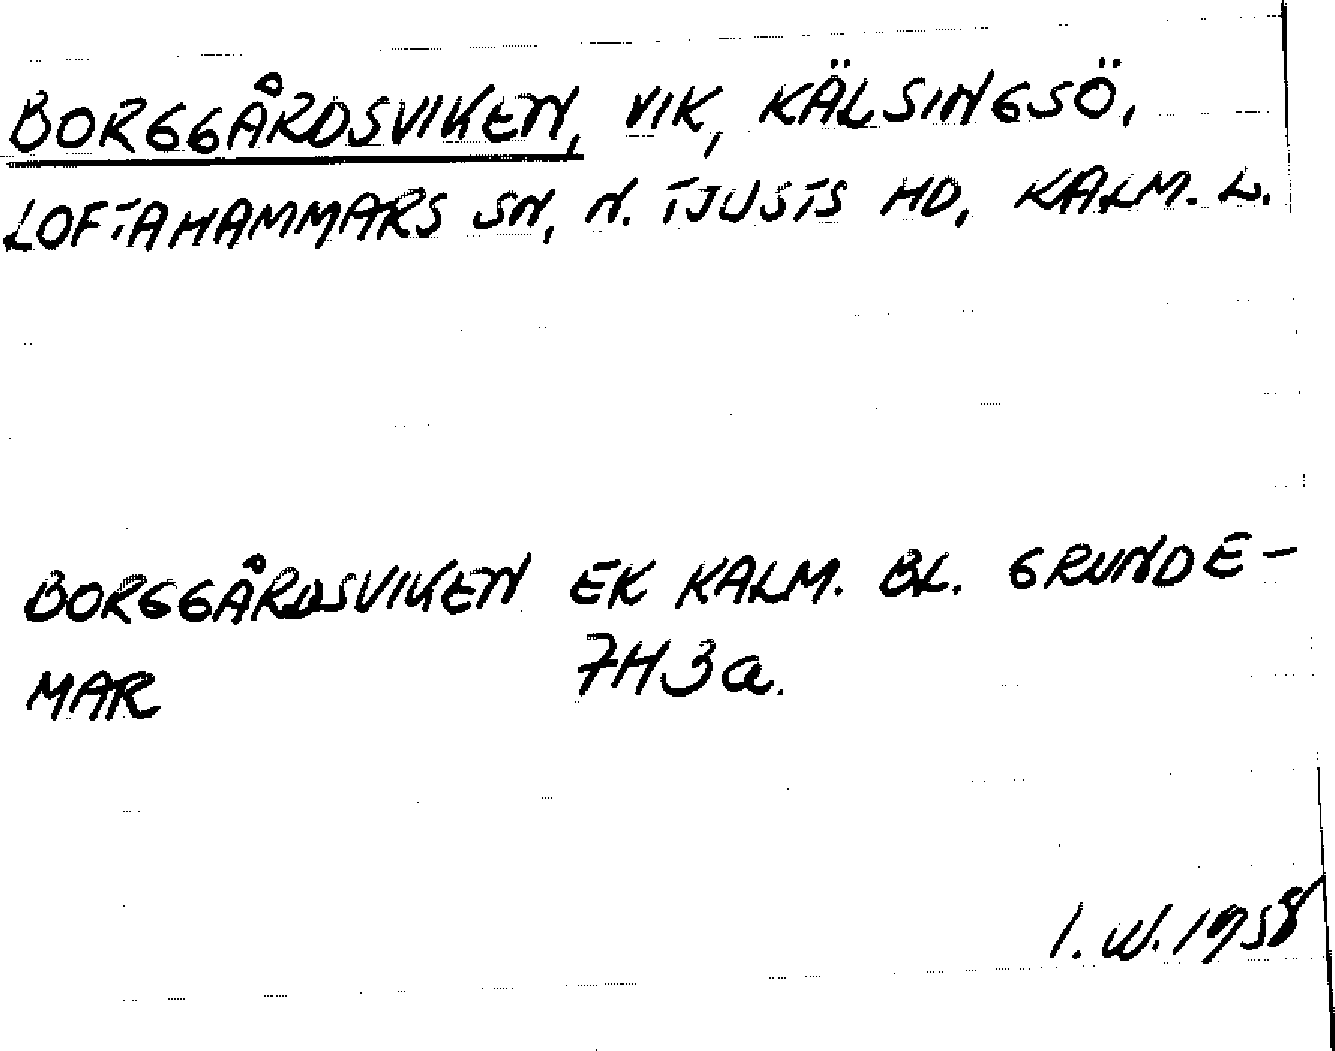 BORGGÅRDSVIKEN, VIK, KÄLSINGSÖ,
LOFTAHAMMARS SN, N. TJUSTS HD, KALM. L.
BORGGÅRDSVIKEN EK KALM. BL. GRUNDE-
MAR 7H3a.
I.W.1958